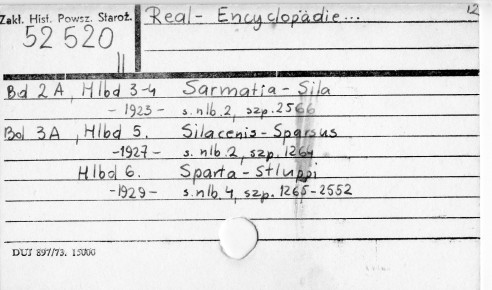 Zakł. Hist. Powsz. Staroż.
Real-Encyclopädie...
12
52 520
II
Bd 2A, Hlbd 3-4 Sarmatia-Sila
-1923- s.nlb.2, szp.2566
Bd 3A, Hlbd 5. Silacenis-Sparsus
-1927- s.nlb.2, szp.1264
Hlbd 6. Sparta-Stluppi
-1929- s.nlb.4, szp.1265-2552
DUJ 897/73. 15000